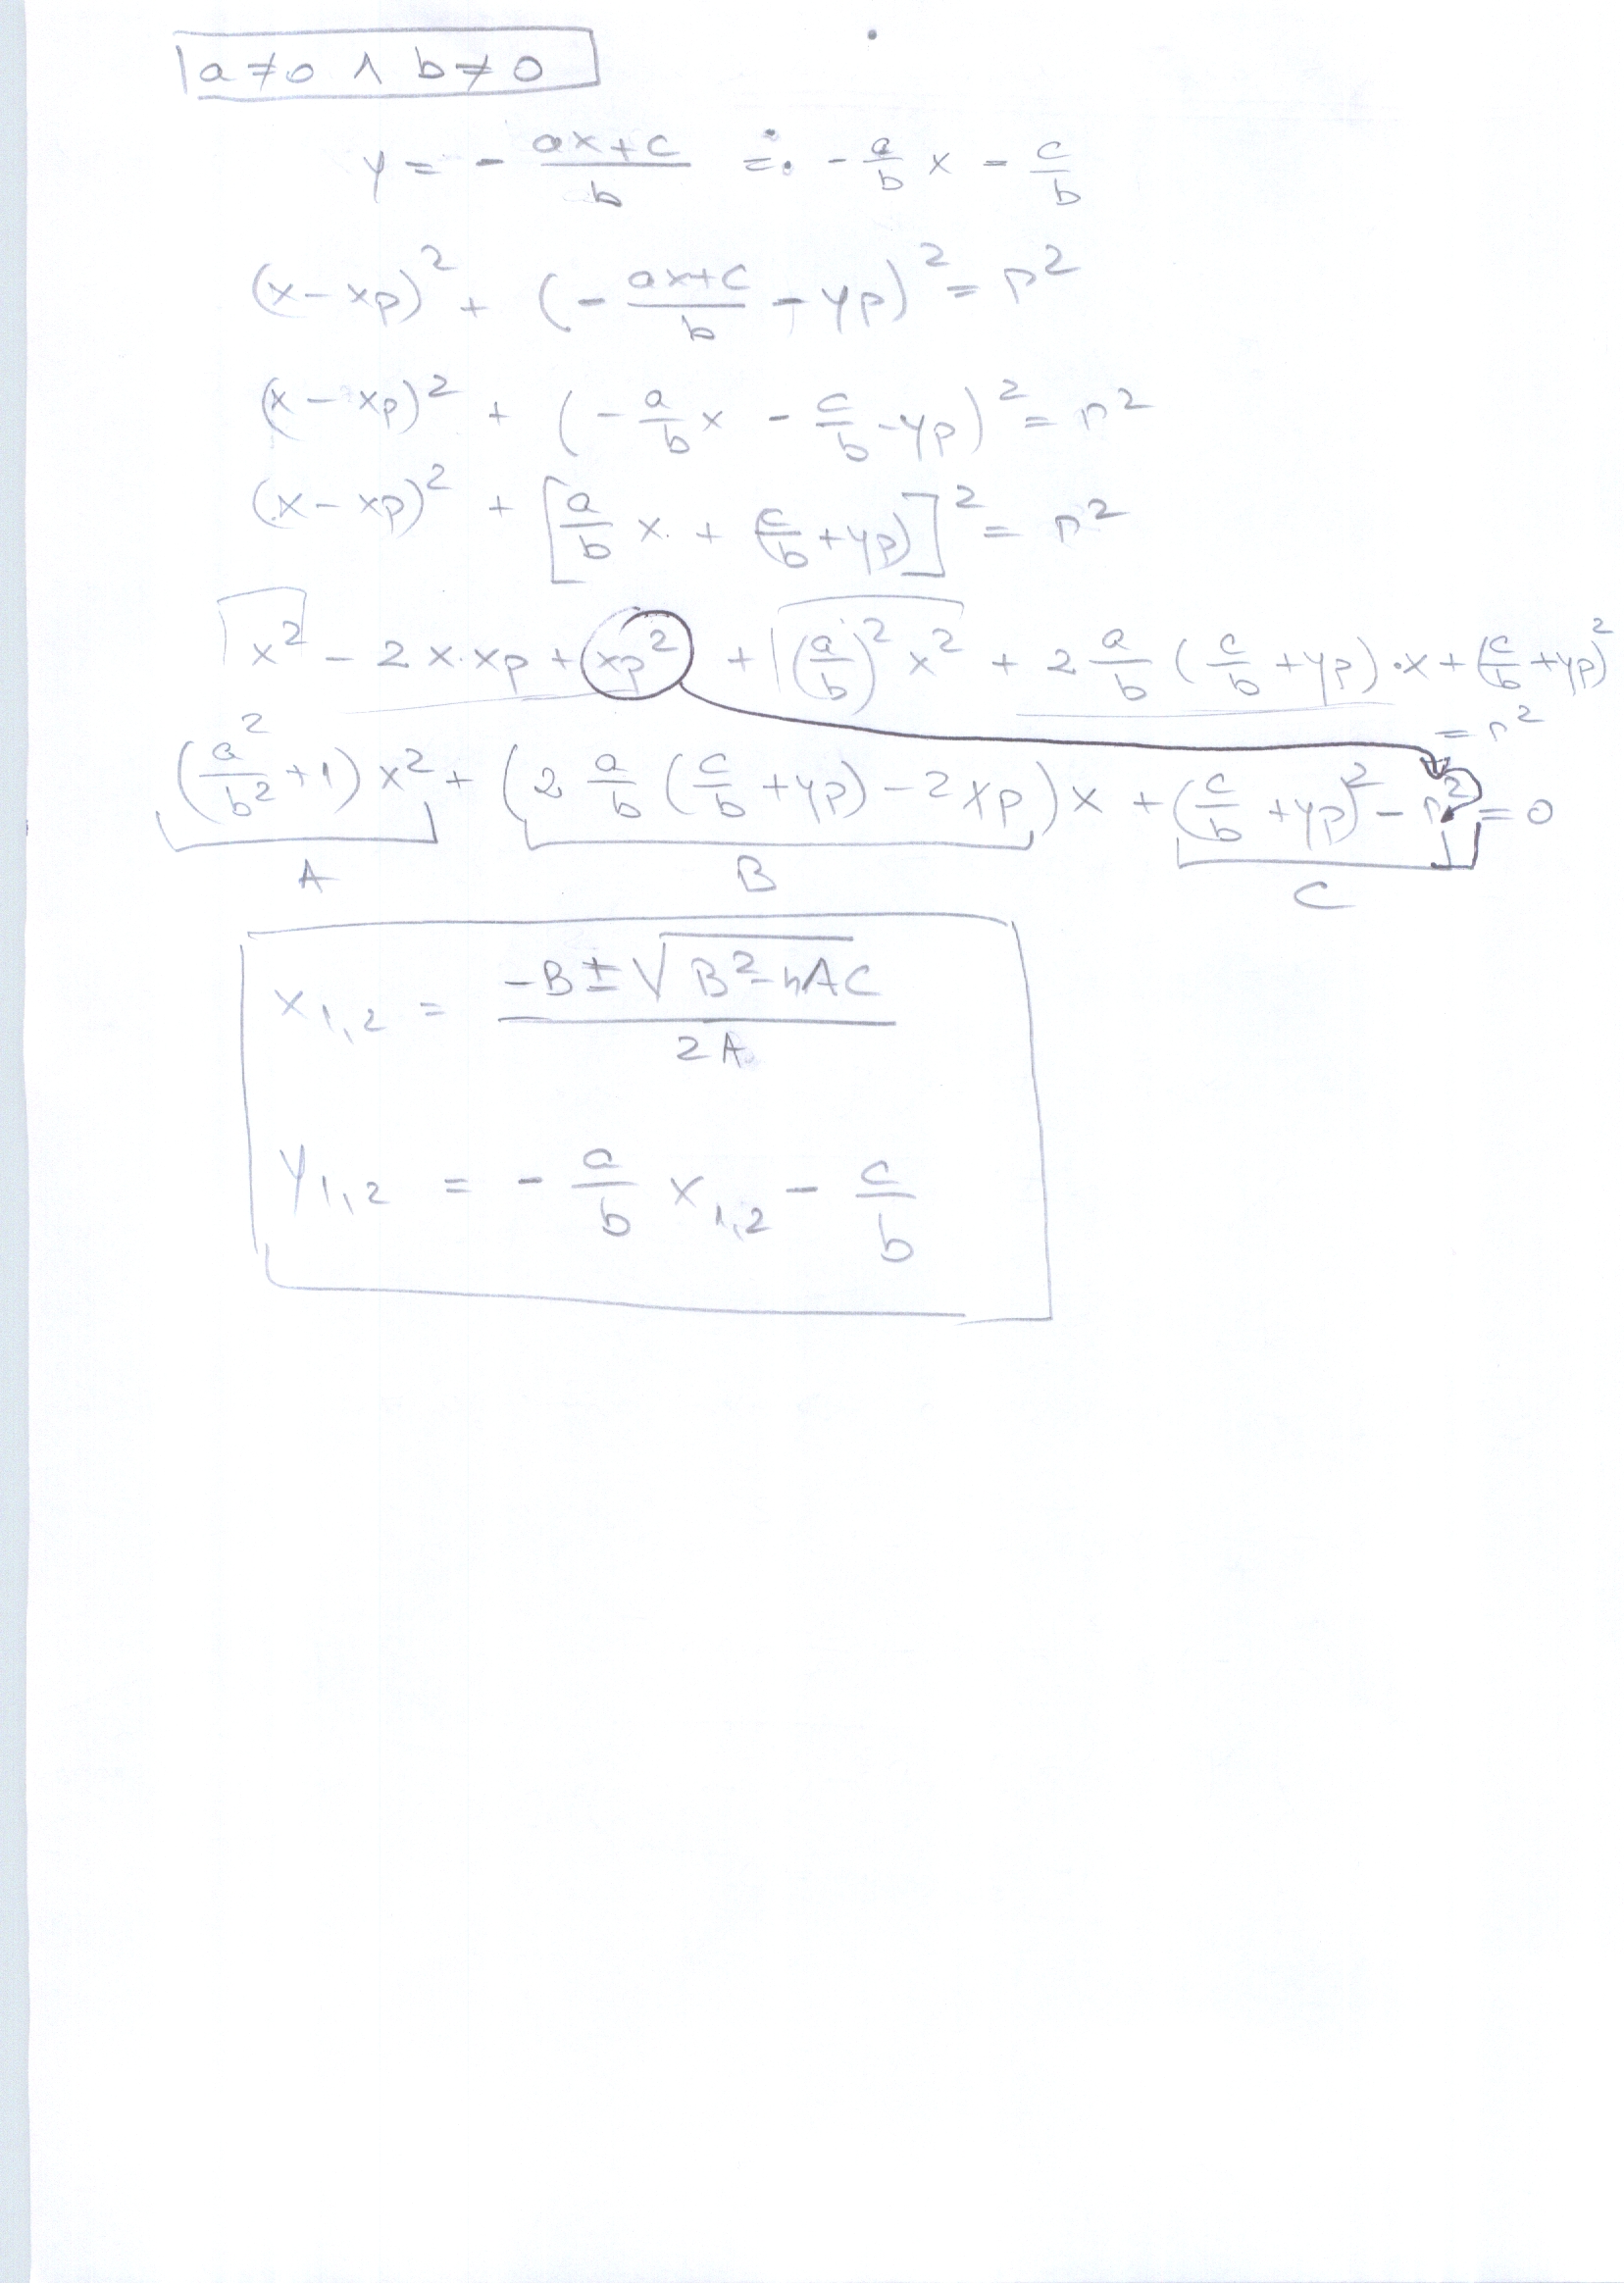 a ≠ 0 ∧ b ≠ 0
y = - \frac{ax+c}{b} = - \frac{a}{b} x - \frac{c}{b}
(x - xp)^2 + (- \frac{ax+c}{b} - yp)^2 = r^2
(x - xp)^2 + (- \frac{a}{b} x - \frac{c}{b} - yp)^2 = r^2
(x - xp)^2 + [\frac{a}{b} x + (\frac{c}{b} + yp)]^2 = r^2
x^2 - 2x·xp + xp^2 + (\frac{a}{b})^2 x^2 + 2 \frac{a}{b} (\frac{c}{b} + yp)·x + (\frac{c}{b} + yp)^2
= r^2
(\frac{a^2}{b^2} + 1) x^2 + (2 \frac{a}{b} (\frac{c}{b} + yp) - 2xp) x + (\frac{c}{b} + yp)^2 - r^2 = 0
A B C
x_{1,2} = \frac{-B ± \sqrt{B^2 - 4AC}}{2A}
y_{1,2} = - \frac{a}{b} x_{1,2} - \frac{c}{b}